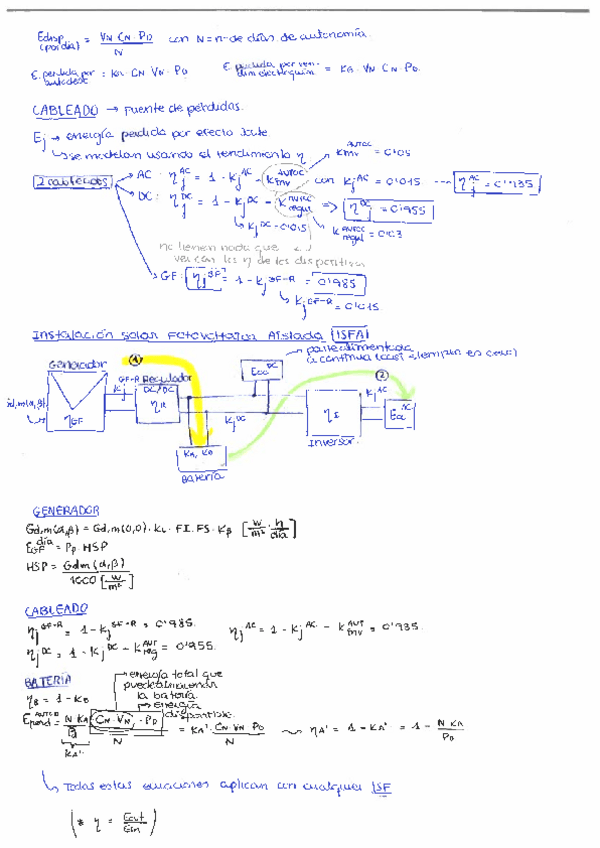 Edisp (por día) = VN CN PD / N con N = nº de días de autonomía.
E. perdida por autodesc = KA · CN VN · PD E. perdida por ren- = KB · VN CN · PD.
CABLEADO → fuente de pérdidas.
Ej → energía perdida por efecto Joule
↳ se modelan usando el rendimiento η K inv AUTOC = 0'05
→ AC: ηj AC = 1 - Kj AC - K inv AUTOC con Kj AC = 0'015 ηj AC = 0'935
→ DC: ηj DC = 1 - Kj DC - K regul AUTOC => ηj DC = 0'955
↳ Kj DC = 0'015 K regul AUTOC = 0'03
no tienen nada que
ver con los η de los dispositivos
GF: ηj GF = 1 - Kj GF-R = 0'985
↳ Kj GF-R = 0'015
Instalación Solar Fotovoltaica Aislada ISFA
para alimentar a
continua
Generador ① Eoc DC ②
GF-R Regulador Kj AC
Kj DC/DC
Gd,m(α,β) ηGF ηR Kj DC ηI Eoc AC
Inversor
KA, KB
Batería
GENERADOR
Gd,m(α,β) = Gd,m(0,0) · KL · FI · FS · Kβ [W/m² · h/día]
EGF día = Pp · HSP
HSP = Gdm(α,β) / 1000 [W/m²]
CABLEADO
ηj GF-R = 1 - Kj GF-R = 0'985. ηj AC = 1 - Kj AC - K inv AUT = 0'935.
ηj DC = 1 - Kj DC - K reg AUT = 0'955.
BATERIA → energía total que
puede almacenar
la batería.
ηB = 1 - KB → energía
disponible.
= KA' · CN VN PD / N ~> ηA' = 1 - KA' = 1 - N KA / PD
KA'
↳ Todas estas ecuaciones aplican con cualquier ISF
(* η = Eout / Ein)